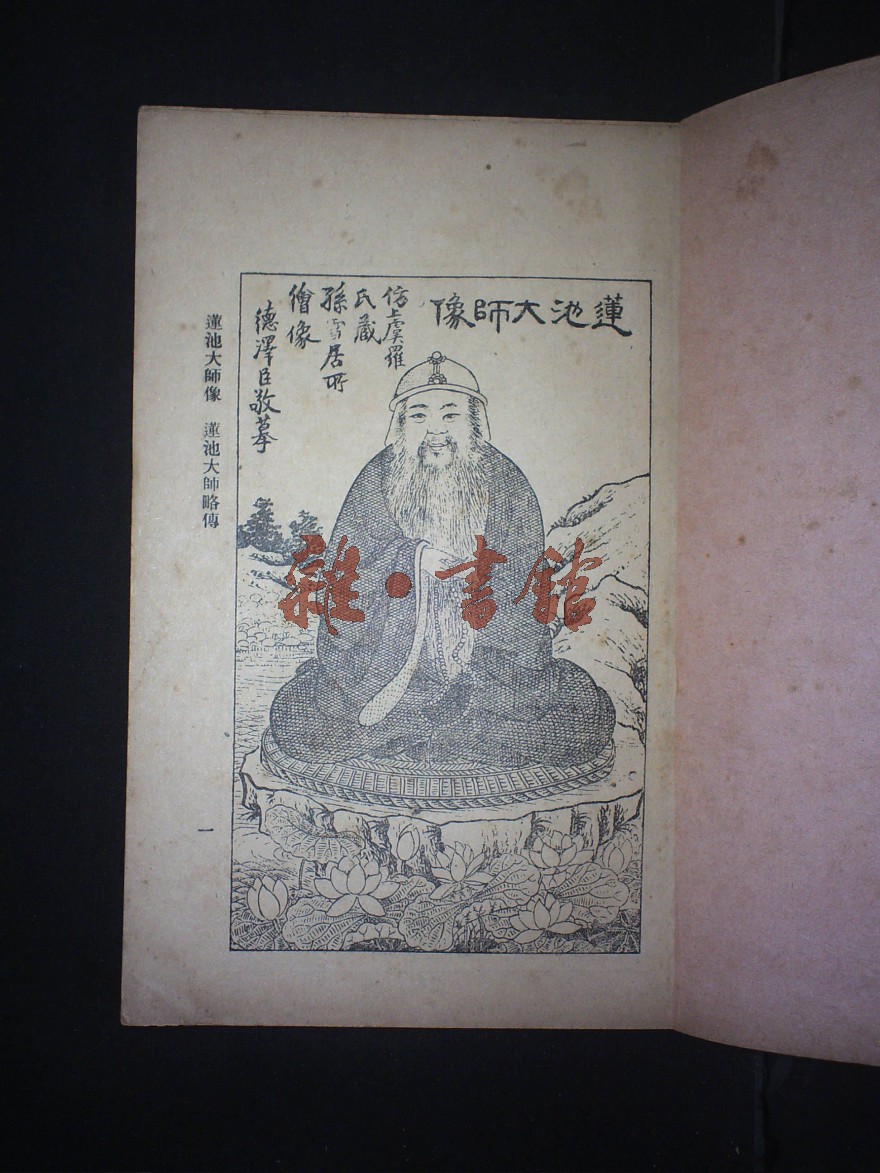 蓮池大師像
仿上虞羅
氏藏
孫雪居所
繪像
德澤臣敬摹
蓮池大師像 蓮池大師略傳
一
雜·書館